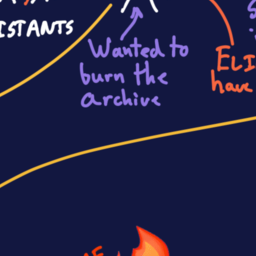 ISTANTS
Wanted to
burn the
archive
ELI
have